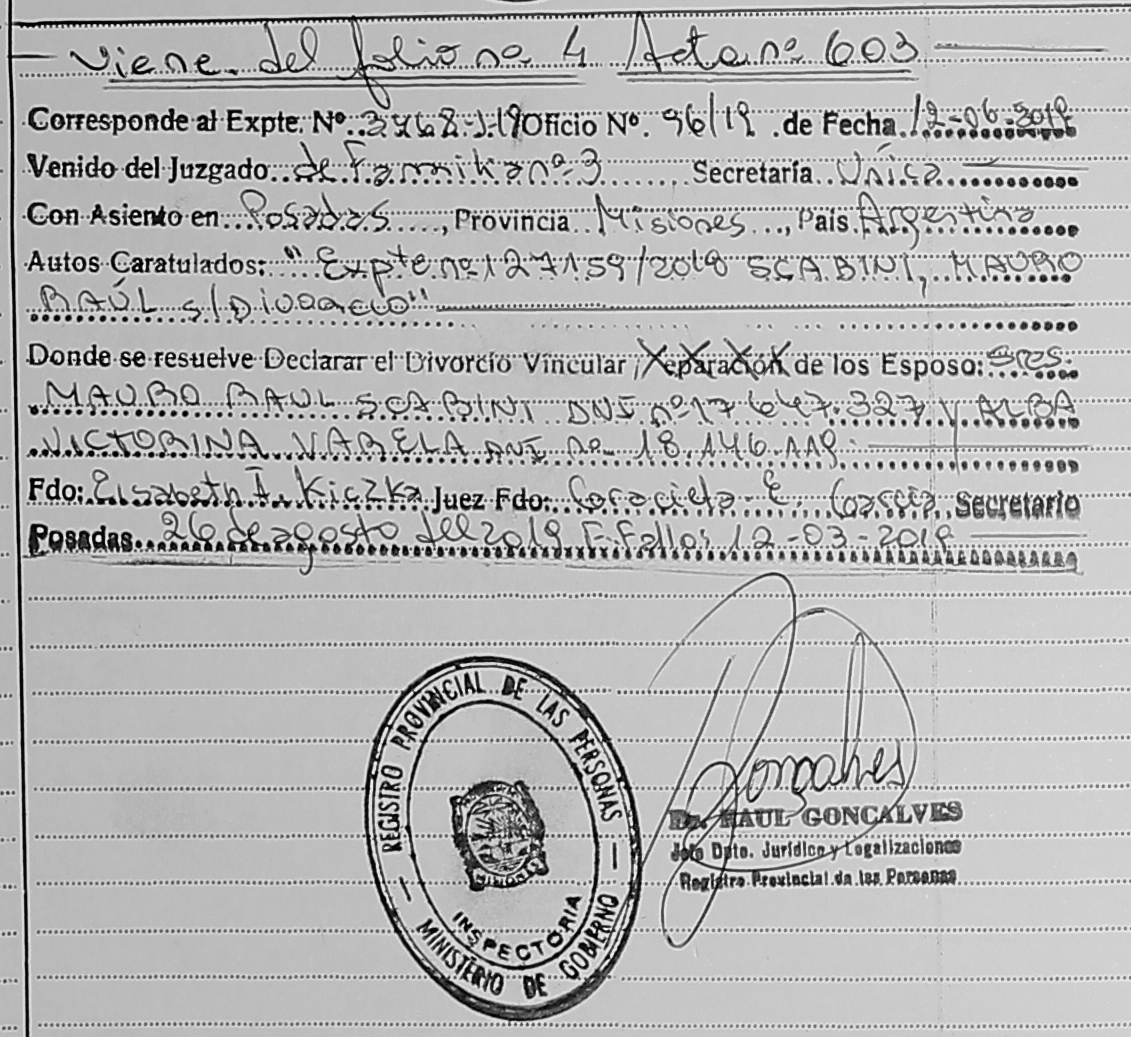 Viene del folio nº 4 Acta nº 603
Corresponde al Expte. Nº 3468-J-19 Oficio Nº. 96/19 de Fecha 12-06-2019
Venido del Juzgado de Familia nº 3 Secretaría Única
Con Asiento en Posadas, Provincia Misiones, País Argentina
Autos Caratulados: "Expte nº 127159/2018 SCABINI, MAURO
RAÚL s/Divorcio"
Donde se resuelve Declarar el Divorcio Vincular / de los Esposo: Sres.
MAURO RAUL SCABINI DNI nº 17 647.327 y ALBA
VICTORINA VARELA DNI nº 18.146.119.
Fdo: Elisabeth A. Kiczka Juez Fdo: E. Secretario
Posadas 26 de agosto del 2019 F.Fallo: 12-03-2019
REGISTRO PROVINCIAL DE LAS PERSONAS
INSPECTORIA
MINISTERIO DE GOBIERNO
Gonçalves
Dr. RAUL GONCALVES
Jefe Dpto. Jurídico y Legalizaciones
Registro Provincial de las Personas